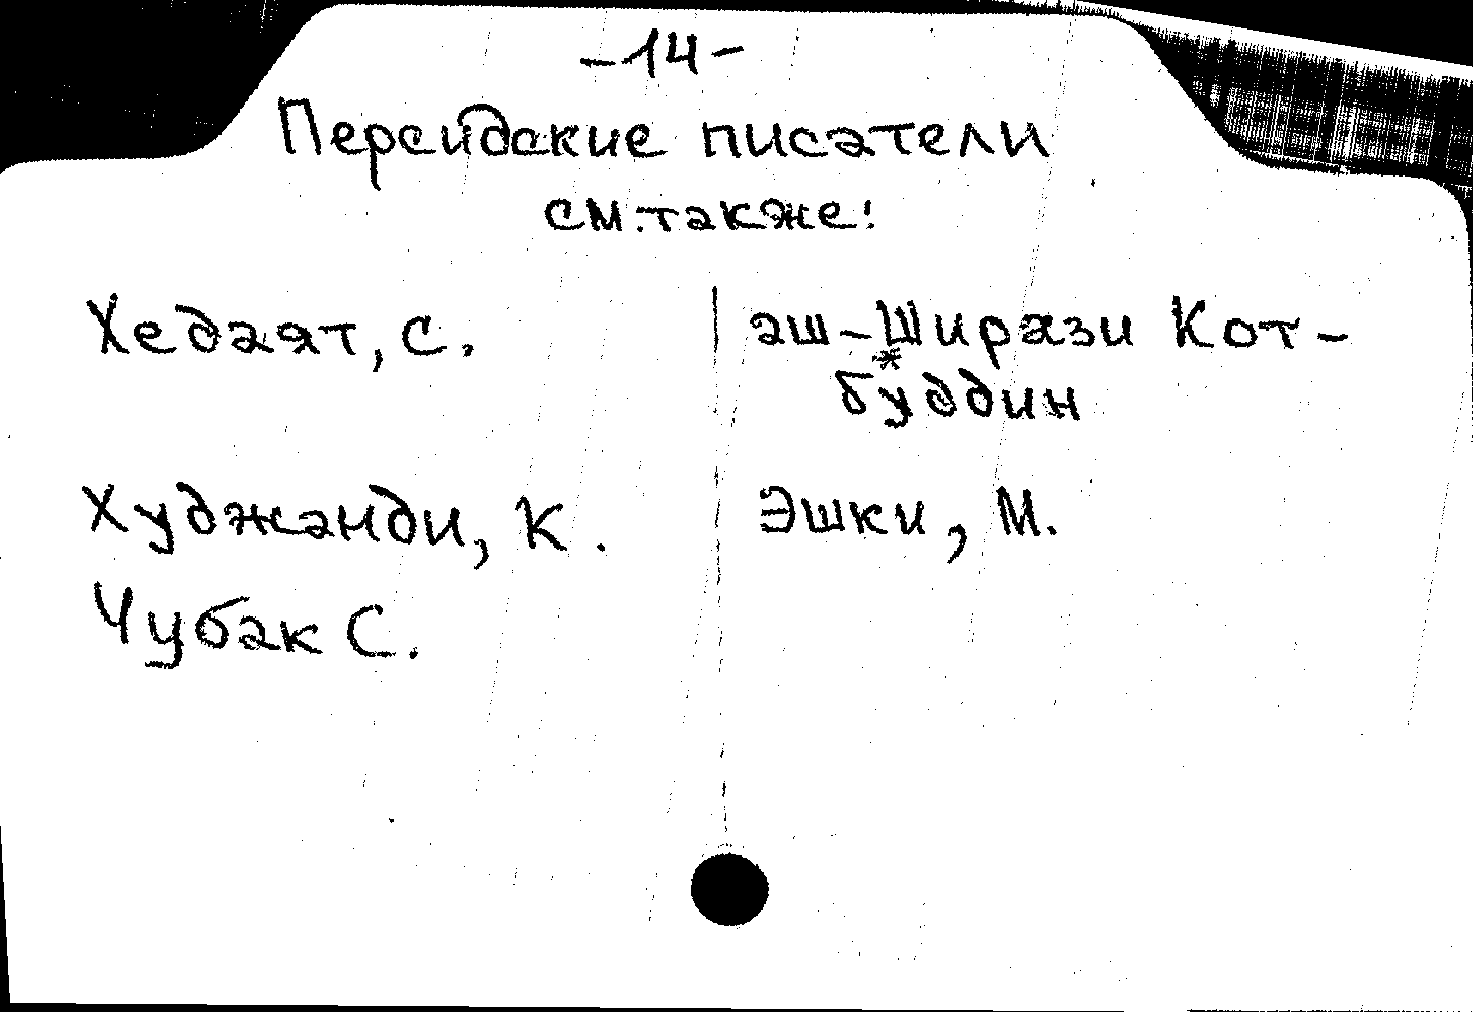 -14-
Персидские писатели
см. также:
Хедаят, С.
Худжанди, К.
Чубак С.
аш-Ширази Кот-
буддин
Эшки, М.